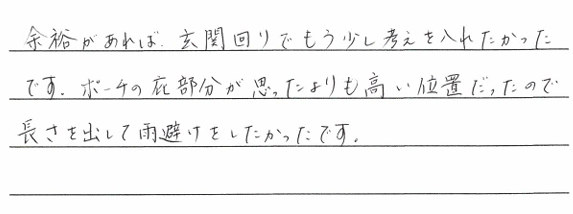 余裕があれば、玄関回りでもう少し考えを入れたかった
です。ポーチの庇部分が思ったよりも高い位置だったので
長さを出して雨避けをしたかったです。